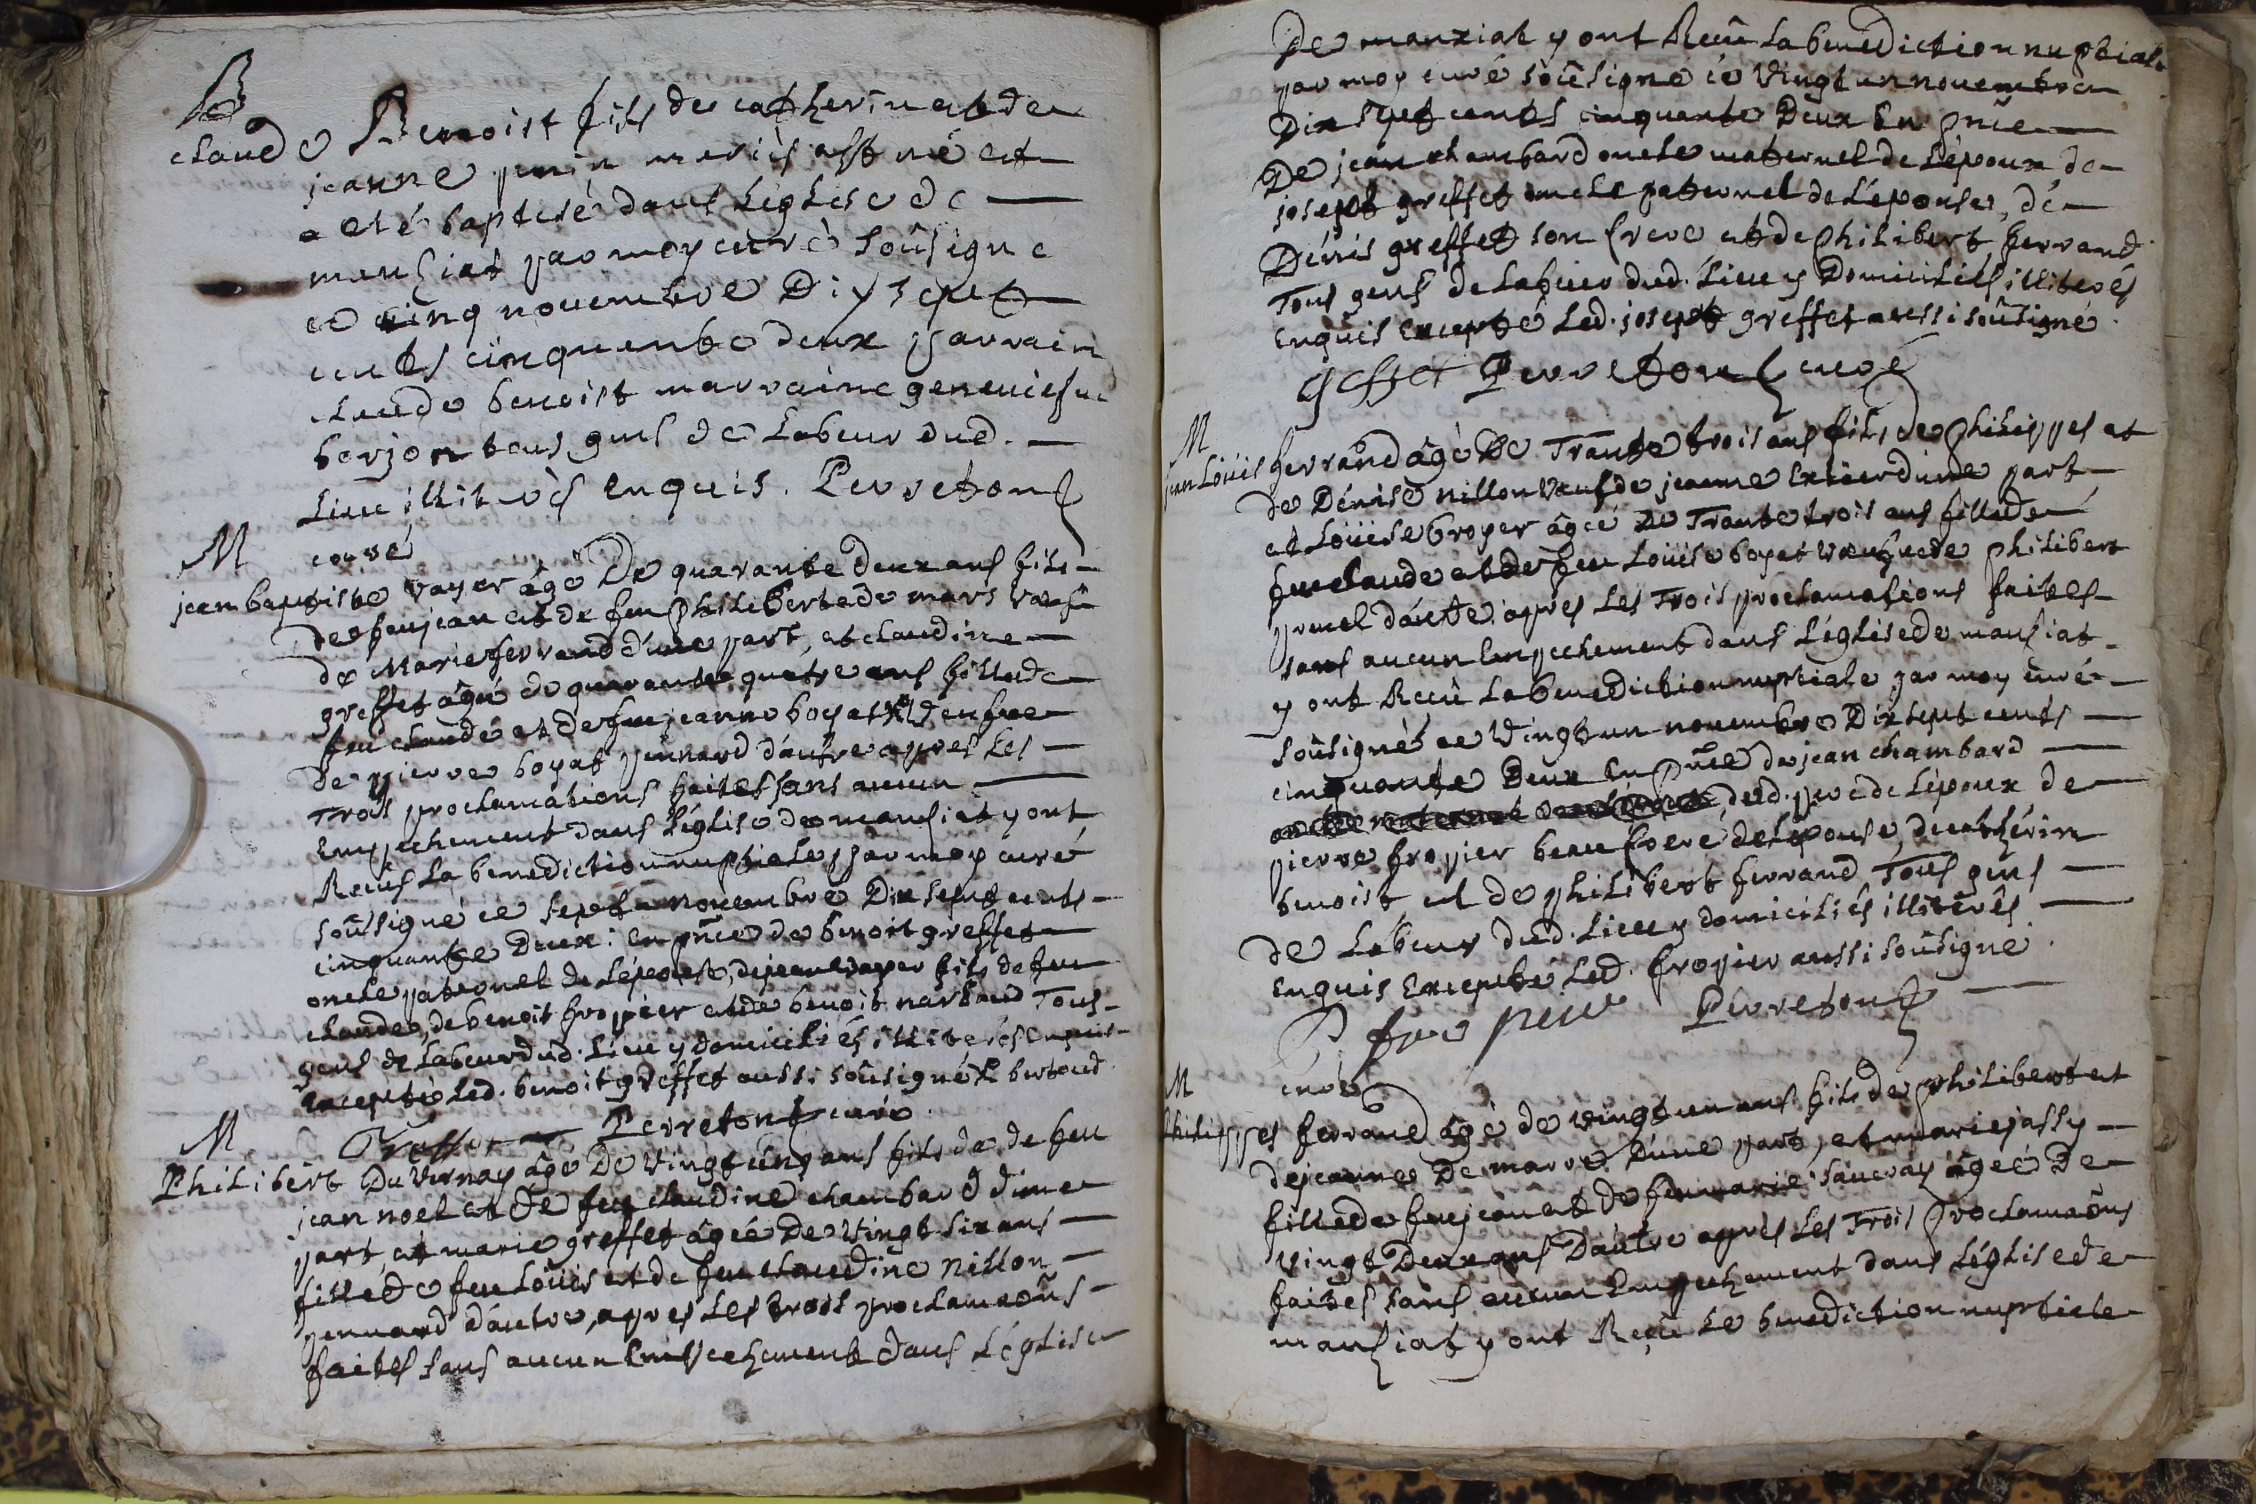 B
claude Benoist fils de catherin et de
jeanne mariés est né et
a eté baptisé dans L'église de
manziat par moy curé soûsigné
ce cinq novembre Dix sept
cents cinquante deux parrain
claude benoist marraine genevieſve
borjon tous gens de Labeur dud.
Lieu illiterés enquis. Perreton
curé
M
jean baptiste vayer âgé De quarante deux ans fils
de feu jean et de feu philiberte de mars vauf
de Marie ferrand d'une part, et claudine
greffet âgée de quarante quatre ans fille de
feu claude et de feu jeanne boyat veufve
de pierre boyat d'autre apres Les
Trois proclamations faites sans aucun
Empechement dans L'église de manziat y ont
Reçus La benediction nuptiale par moy curé
soûsigné ce sept novembre Dix sept cents
cinquante Deux: En pñce de benoit greffet
oncle paternel de L'épouse, de jean vayer fils de feu
claude, de benoit fropier et de benoit narbaud Tous
gens de Labeur dud. Lieu y domiciliés illiterés Enquis
Excepté Led. benoit greffet aussi soûsigné
Greffet Perreton curé
M
Philibert Du Vernay âgé De Vingt un ans fils de de feu
jean noel et De feu claudine chambard d'une
part, et marie greffet âgée De Vingt six ans
fille de feu Loüis et de feu claudine Nillon
d'autre, apres Les trois proclamaôns
faites sans aucun Empechement dans L'église
De manziat y ont Reçû La benediction nuptiale
par moy curé soûsigné ce Vingt un novembre
Dix sept cents cinquante Deux En pñce
De jean chambard oncle maternel de L'époux de
joseph greffet oncle paternel de L'épouse, de
Dénis greffet son frere et de philibert ferrand
Tous gens de Labeur dud. Lieu y Domiciliés illiterés
Enquis Excepté Led. joseph greffet aussi soûsigné.
Greffet Perreton curé
M
jean Loüis ferrand âgé De Trante trois ans fils de philippes et
de Dénise nillon vauf de jeanne d'une part
et Loüise broyer âgée De Trante trois ans fille de
feu claude et de feu Loüise boyat veufve de philibert
d'autre, apres Les Trois proclamations faites
sans aucun Empechement dans L'église de manziat
y ont Reçû La benediction nuptiale par moy curé
soûsigné ce Vingt un novembre Dix sept cents
cinquante Deux En pñce de jean chambard
dud. pere de L'époux de
pierre fropier beau frere de L'épouse, de cathérin
benoist et de philibert ferrand Tous gens
de Labeur dud. Lieu y domiciliés illiterés
Enquis Excepté Led. fropier aussi soûsigné.
P fropier Perreton
curé
M
Philippes ferrand âgé de vingt un ans fils de philibert et
de jeanne De marre d'une part, et marie jassy
fille de feu jean et de feu marie âgée De
Vingt Deux ans D'autre apres Les Trois proclamaôns
faites sans aucun Empechement dans L'église de
manziat y ont Reçû La benediction nuptiale